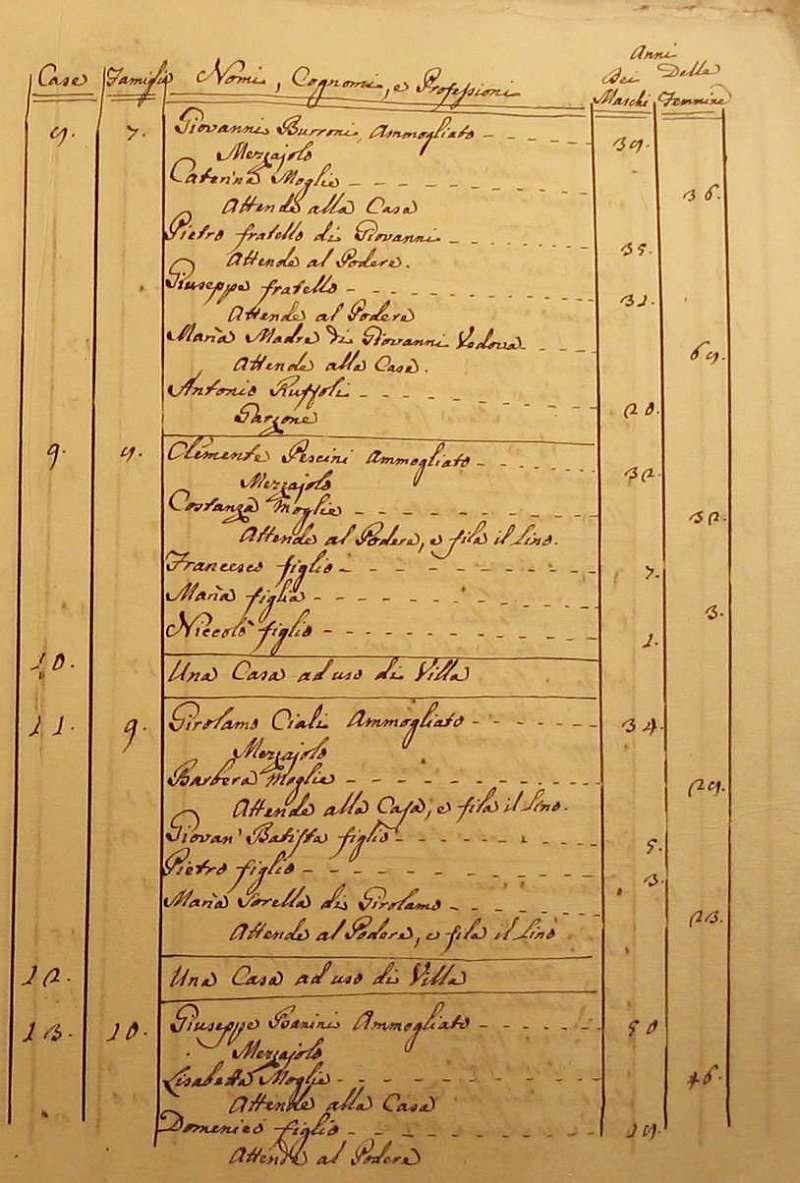 Anni
Case Famiglie Nomi, Cognomi, e Professioni Dei Maschi Delle Femmine
8. 7. Giovanni Burroni, Ammogliato 38.
Mezzajolo
Caterina Moglie 36.
Attende alla Casa
Pietro fratello di Giovanni 35.
Attende al Podere.
Giuseppe fratello 31.
Attende al Podere
Maria Madre di Giovanni Vedova 68.
Attende alla Casa.
Antonio Ruffoli 20.
Garzone
9. 8. Clemente Pescini Ammogliato 32.
Mezzajolo
Costanza Moglie 32.
Attende al Podere, e fila il lino.
Francesco figlio 7.
Maria figlia 3.
Niccolò figlio 1.
10. Una Casa ad uso di Villa
11. 9. Girolamo Ciali Ammogliato 34.
Mezzajolo
Barbera Moglie 28.
Attende alla Casa, e fila il lino.
Giovan' Batista figlio 5.
Pietro figlio 3.
Maria Sorella di Girolamo 23.
Attende al Podere, e fila il lino
12. Una Casa ad uso di Villa
13. 10. Giuseppe Banini Ammogliato 50
Mezzajolo
Lisabetta Moglie 46.
Attende alla Casa
Domenico figlio 18.
Attende al Podere